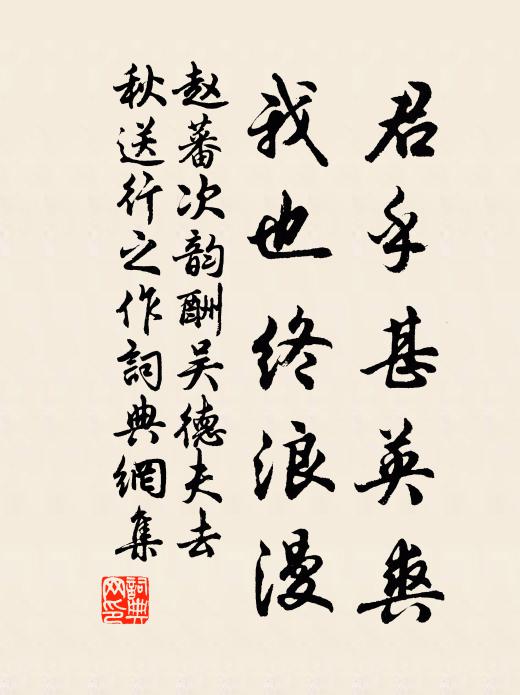 君乎甚英爽
我也终浪漫
赵蕃次韵酬吴德夫去
秋送行之作詞典網集
詞典网印